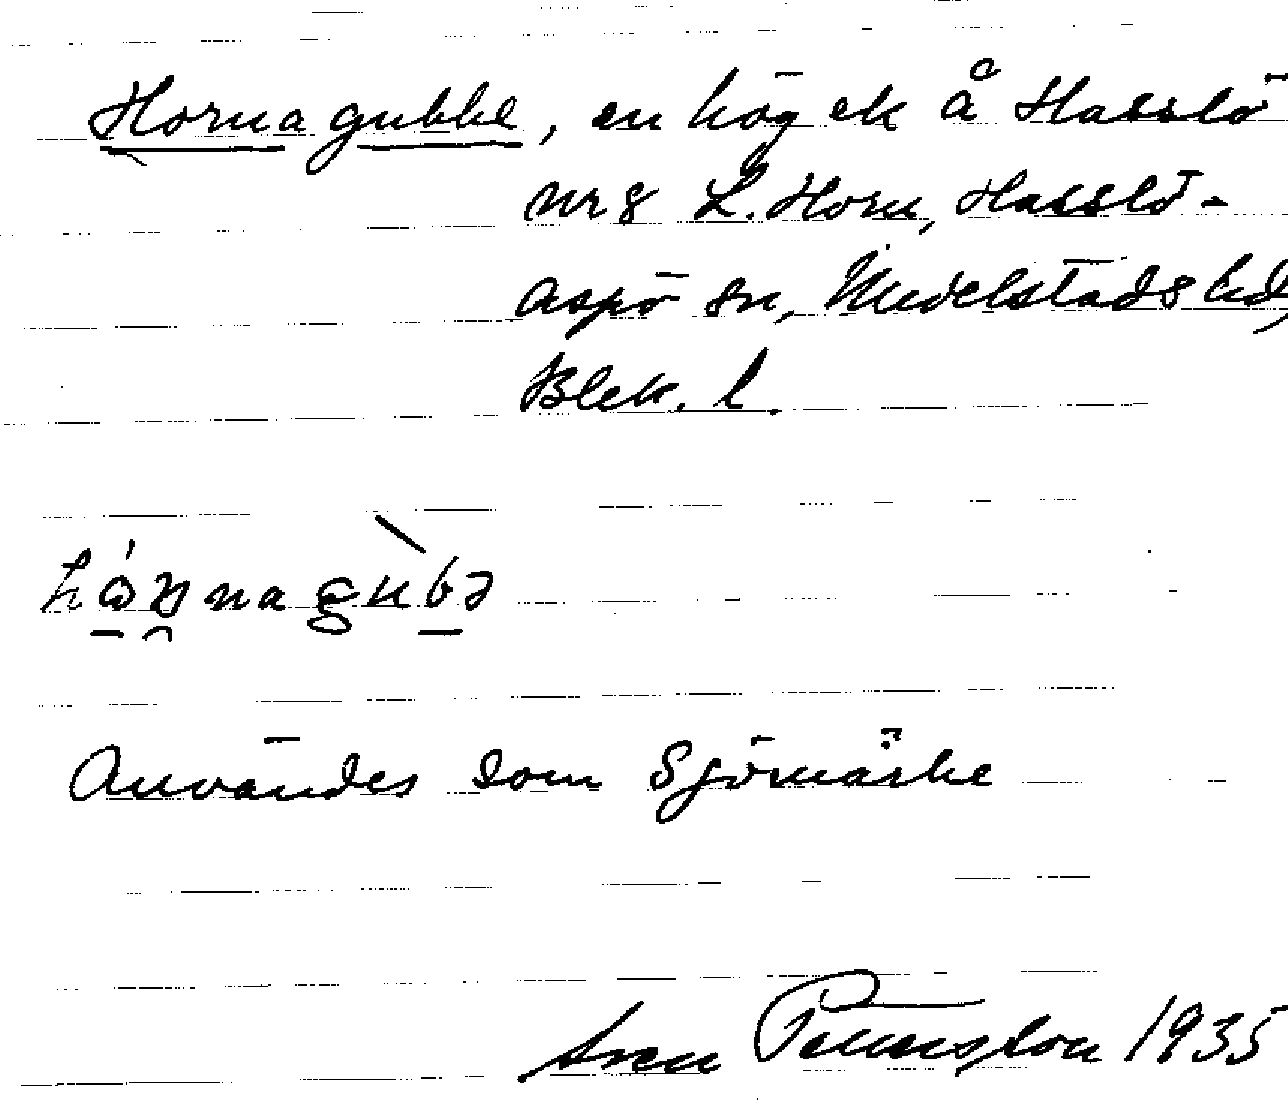 Hornagubbe, en hög ek å Hasslö
nr 8 L. Horn, Hasslö-
Aspö sn, Medelstads hd,
Blek. l.
Användes som Sjömärke
Sven 1935